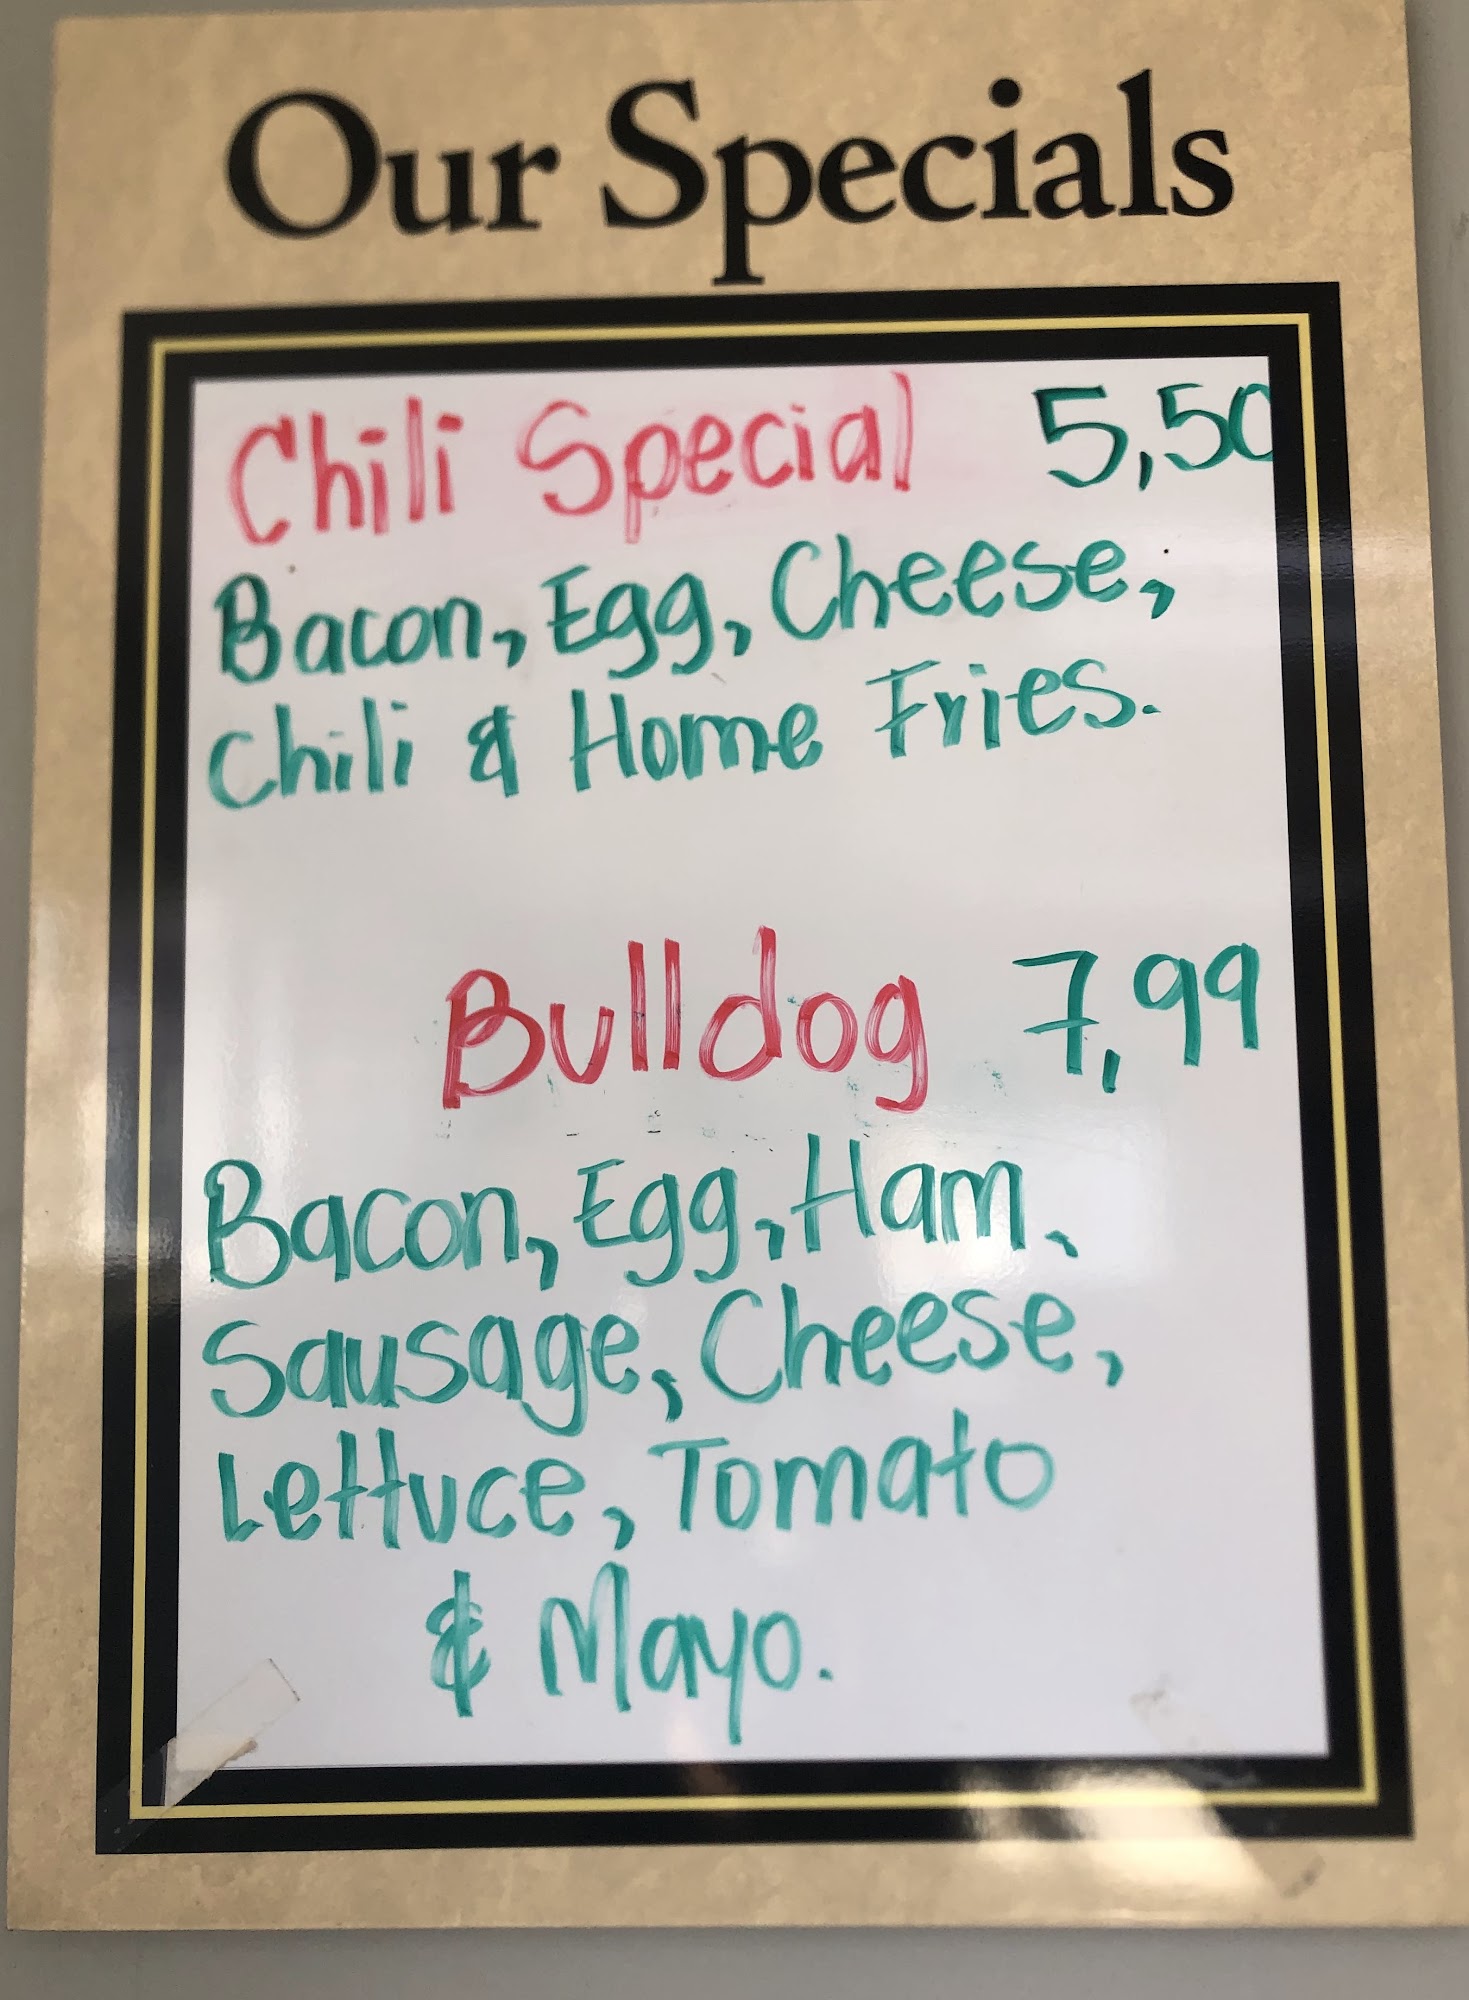 Our Specials
Chili Special 5,50
Bacon, Egg, Cheese,
Chili & Home Fries.
Bulldog 7,99
Bacon, Egg, Ham,
Sausage, Cheese,
Lettuce, Tomato
& Mayo.